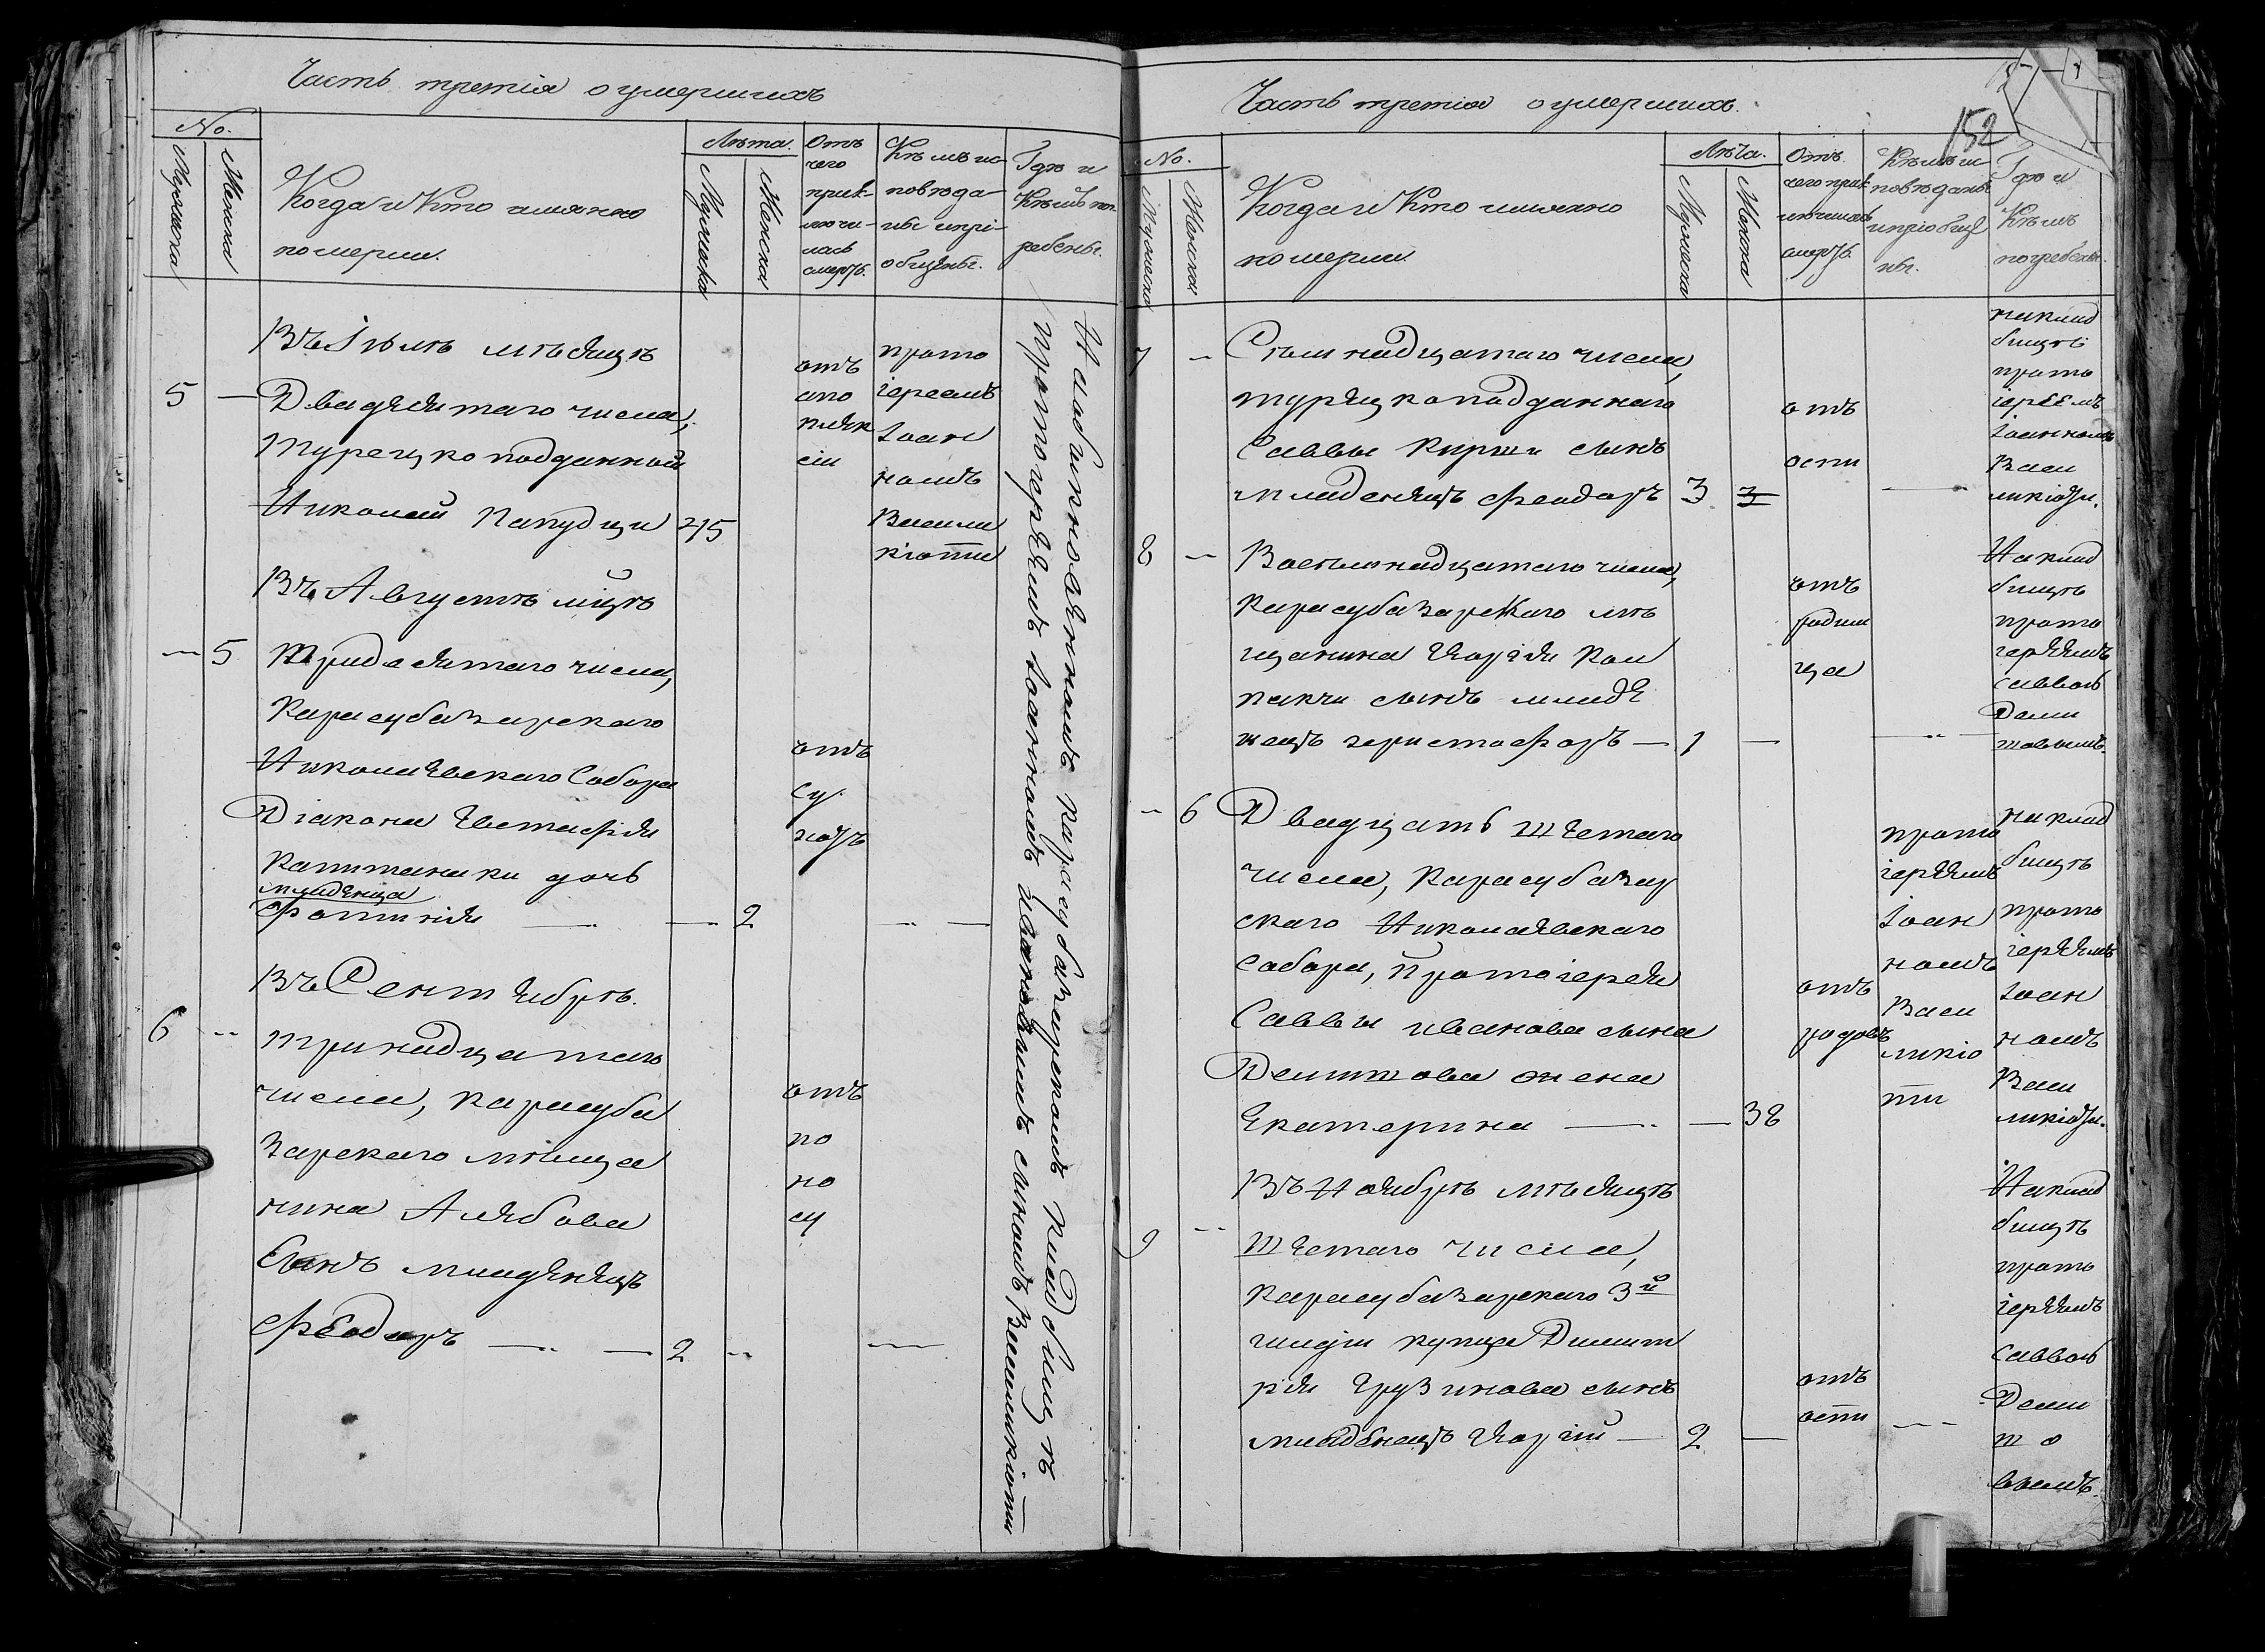 Часть третія о умершихъ
No.
Мужеска
Женска
Когда и Кто именно
померли.
Лѣта.
Мужеска
Женска
Отъ
чего
прик-
лючи-
лась
смерть.
Кѣмъ ис-
поведа-
ны и прі-
общены.
Где и
Кѣмъ пог-
ребены.
Въ Іюлѣ мѣсяцѣ
5 — Двадясятаго числа,
турецкоподданный
Николай Папудци 75
отъ
апо
плек
сіи
прото
іереемъ
Іоан
номъ
Васили
кіоти
Въ Августѣ мцѣ
— 5 Тридесятаго числа,
Карасубазарскаго
Николаевскаго Собора
Діакона Евстафія
Капитанаки дочь
младенца
Фотинія — — 2
отъ
су
хотъ
Въ Сентябрѣ.
6 — тринадцатаго
числа, Карасуба
зарскаго мѣща
нина Алябова
Сынъ младенецъ
Феодоръ — — 2 —
отъ
по
но
су
На обыкновенномъ Карасубазарскомъ кладбищѣ
протоіереемъ Іоанномъ Ивановымъ сыномъ Василикіоти
Часть третія о умершихъ.
152
No.
Мужеска
Женска
Когда и Кто именно
померли.
Лѣта.
Мужеска
Женска
Отъ
чего прик-
лючилась
смерть.
Кѣмъ ис
поведаны
и пріобще
ны.
Где и
Кѣмъ
погребены.
7 — Семнадцатаго числа,
турецкоподданнаго
Саввы Кирши сынъ
младенецъ Феодоръ 3 3
отъ
оспи
на клад
бищѣ
прото
іереемъ
Іоанномъ
Васи
ликіоти.
8 — Восемнадцатаго числа,
Карасубазарскаго мѣ
щанина Георгія Кол
пакчи сынъ младе
нецъ Христофоръ — 1 —
отъ
родим
ца
На клад
бищѣ
прото
іереемъ
Саввою
Деми
товымъ.
— 6 Двадцать шестаго
числа, Карасубазар
скаго Николаевскаго
Собора, Протоіерея
Саввы Иванова сына
Демитова жена
Екатерина — — 38
отъ
родовъ
прото
іереемъ
Іоан
номъ
Васи
ликіо
ти
на клад
бищѣ
прото
іереемъ
Іоан
номъ
Васи
ликіоти.
Въ Ноябрѣ мѣсяцѣ
9 — Шестаго числа,
Карасубазарскаго 3й
гилдіи купца Димит
рія Грузинова сынъ
младенецъ Георгій — 2 —
отъ
оспи
На клад
бищѣ
прото
іереемъ
Саввою
Деми
то
вымъ.